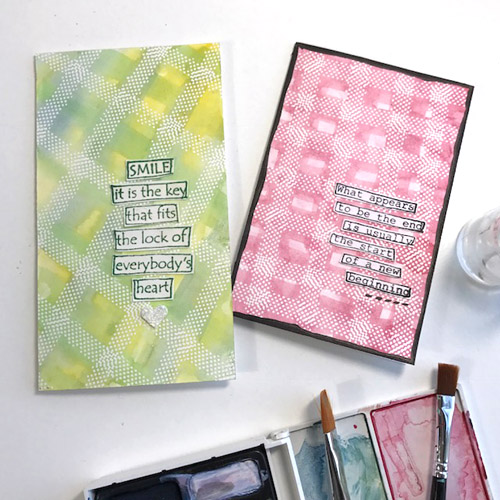 SMILE
it is the key
that fits
the lock of
everybody's
heart
What appears
to be the end
is usually
the start
of a new
beginning